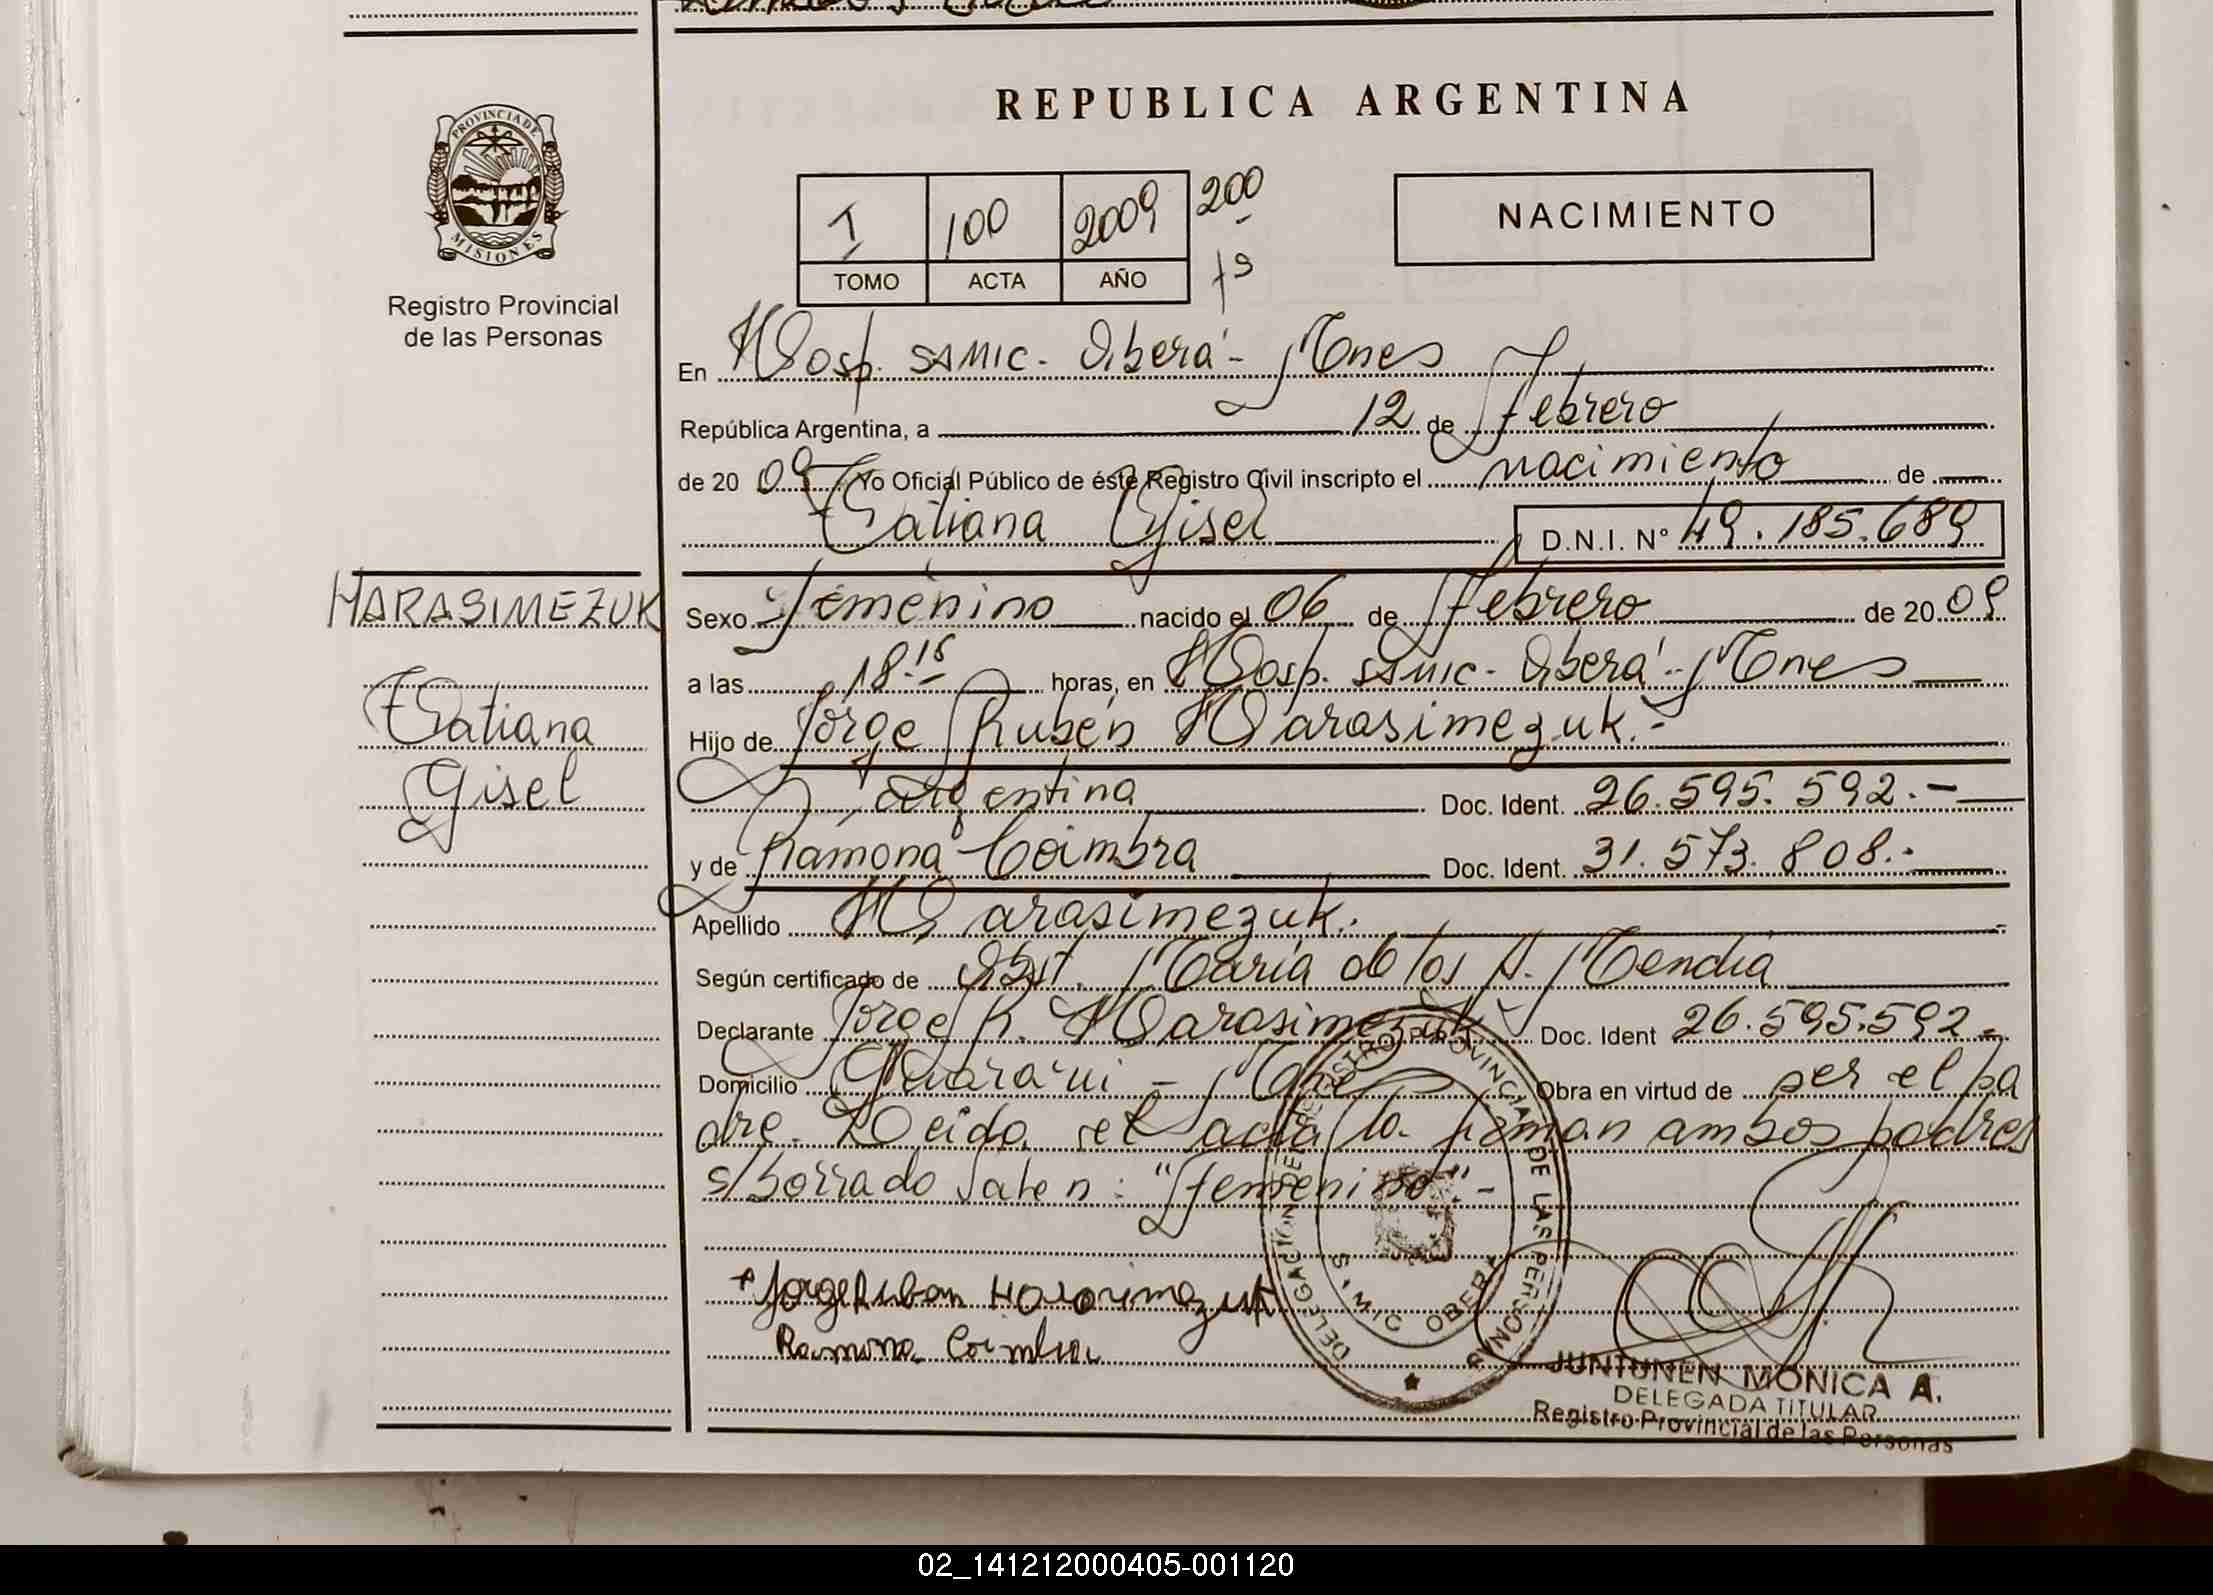 REPUBLICA ARGENTINA
PROVINCIA DE
MISIONES
Registro Provincial
de las Personas
I 100 2009 200
TOMO ACTA AÑO fº
NACIMIENTO
En Hosp. SAMIC - Oberá - Mnes
República Argentina, a 12 de Febrero
de 2009 Yo Oficial Público de éste Registro Civil inscripto el nacimiento de
Tatiana Gisel D.N.I. Nº 49.185.689
HARASIMEZUK
Tatiana
Gisel
Sexo Femenino nacido el 06 de Febrero de 2009
a las 18.15 horas, en Hosp. SAMIC - Oberá - Mnes
Hijo de Jorge Rubén Harasimezuk.-
argentina Doc. Ident. 26.595.592.-
y de Ramona Coimbra Doc. Ident. 31.573.808.-
Apellido Harasimezuk.
Según certificado de Obst. María de los A. Mendia
Declarante Jorge R. Harasimezuk Doc. Ident 26.595.592.-
Domicilio Guaraní - Mnes Obra en virtud de ser el pa
dre. Leida el acta la firman ambos padres
s/borrado Valen: "Femenino".-
Jorge Ruben Harasimezuk
Ramona Coimbra
DELEGACIÓN DEL REGISTRO PROVINCIAL DE LAS PERSONAS
OBERA
JUNTUNEN MONICA A.
DELEGADA TITULAR
Registro Provincial de las Personas
02_141212000405-001120